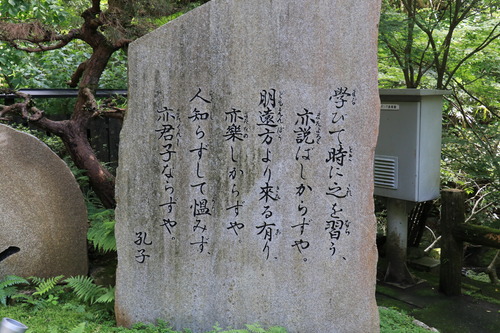 学びて時に之を習う、
亦説ばしからずや。
朋遠方より来る有り、
亦樂しからずや
人知らずして慍みず、
亦君子ならずや。
孔子